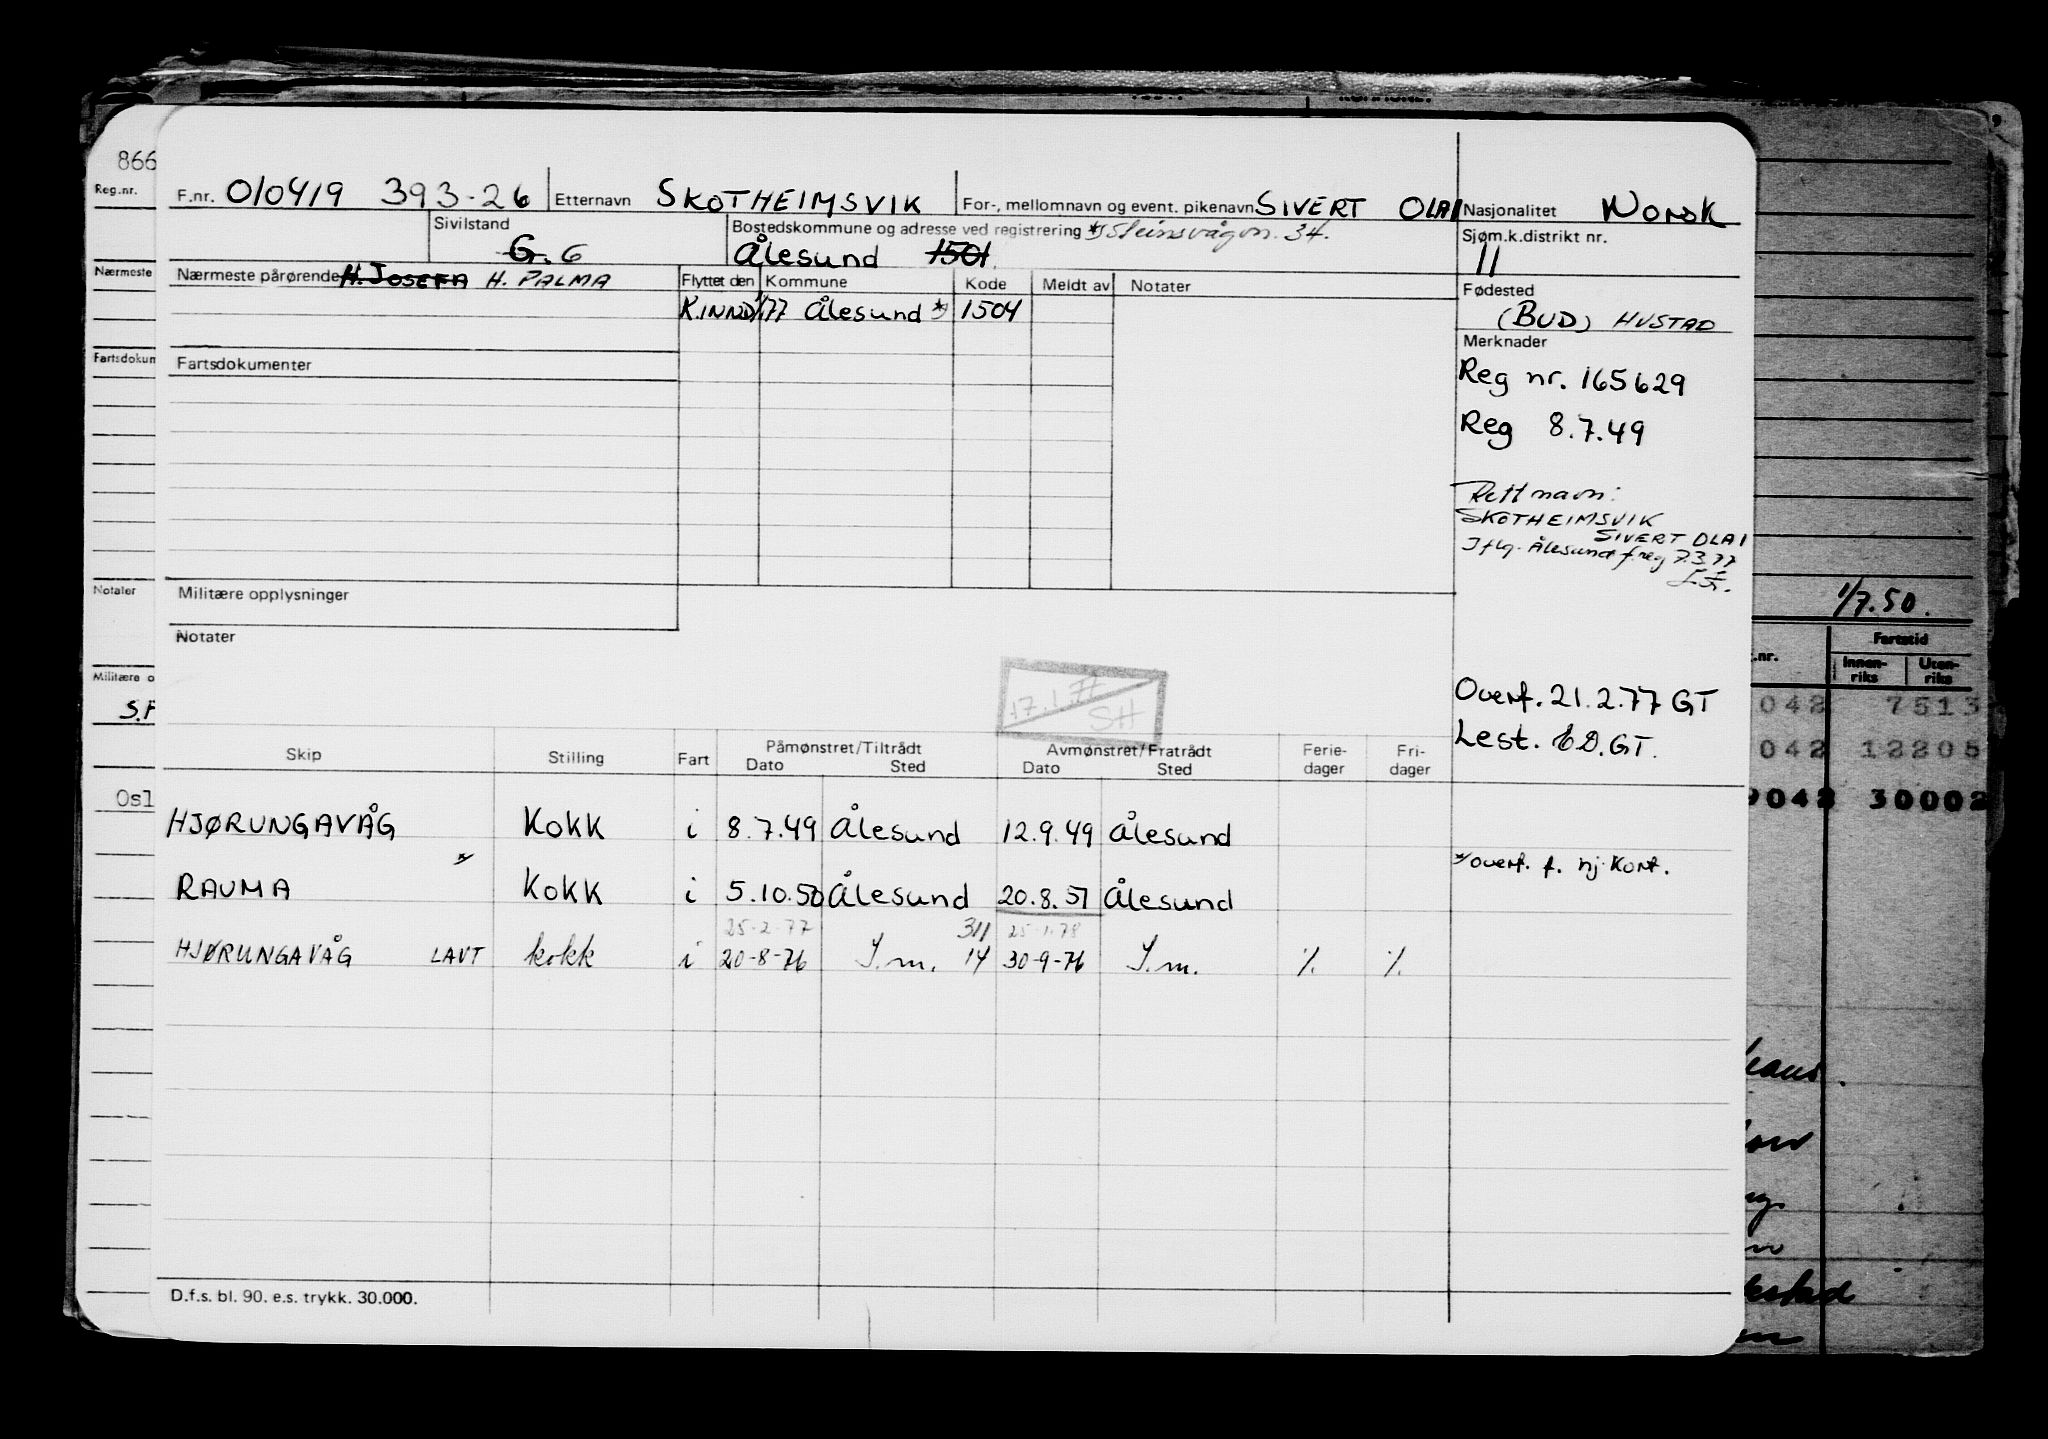 866
Reg.nr.
F.nr. 010419 393-26 Etternavn SKOTHEIMSVIK For-, mellomnavn og event. pikenavn SIVERT OLAI Nasjonalitet NORSK
Sivilstand G. G Bostedskommune og adresse ved registrering *) Steinsvågvn. 34. Sjøm.k.distrikt nr.
Ålesund 1501 11
Nærmeste
Nærmeste pårørende H. JOSEFA H. PALMA Flyttet den Kommune Kode Meldt av Notater Fødested
K.INND 1/1 77 Ålesund *) 1504 (BUD) HUSTAD
Merknader
Fartsdokum
Fartsdokumenter
Reg nr. 165629
Reg 8.7.49
Rett navn:
SKOTHEIMSVIK
SIVERT OLAI
Iflg. Ålesund f.reg 7.3.77
Notater
Militære opplysninger
1/7.50.
Notater
Militære o
S.F
17.1.77
SH
Overf. 21.2.77 GT
Lest. ED.GT.
.nr. Fartstid
Innen-riks Uten-riks
042 7513
042 12205
9042 30002
Skip Stilling Fart Påmønstret/Tiltrådt Avmønstret/Fratrådt Ferie-dager Fri-dager
Dato Sted Dato Sted
Osl
HJØRUNGAVÅG KOKK i 8.7.49 Ålesund 12.9.49 Ålesund
*/ */overf. f. nj. Kort.
RAUMA KOKK i 5.10.50 Ålesund 20.8.51 Ålesund
25-2-77 311 25-1-78
HJØRUNGAVÅG LAVT kokk i 20-8-76 I.m. 14 30-9-76 I.m. % %
D.f.s. bl. 90. e.s. trykk. 30.000.